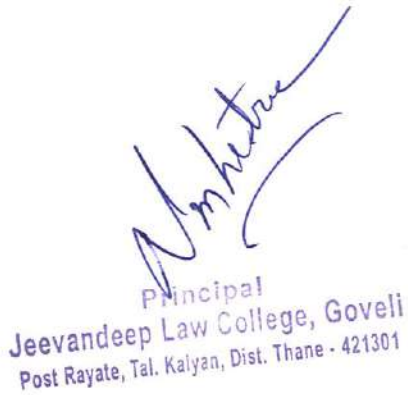 Principal
Jeevandeep Law College, Goveli
Post Rayate, Tal. Kalyan, Dist. Thane - 421301